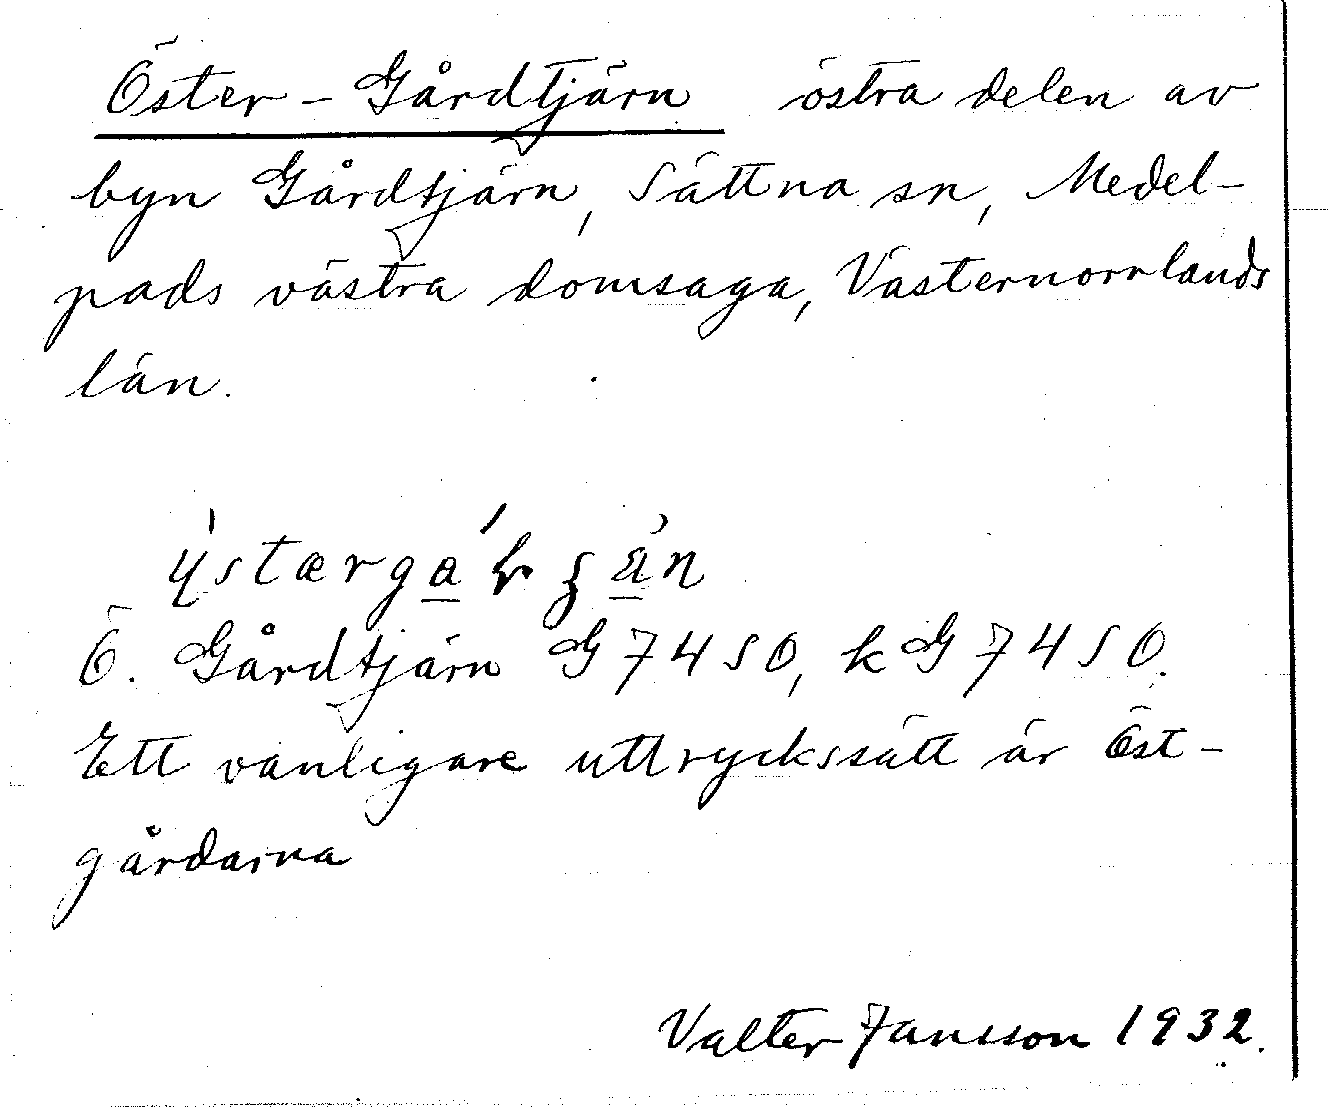 Öster-Gårdtjärn östra delen av
byn Gårdtjärn, Sättna sn, Medel-
pads västra domsaga, Västernorrlands
län.
Ö. Gårdtjärn G 7450, kG 7450.
Ett vanligare uttryckssätt är Öst-
gårdarna
Valter Jansson 1932.